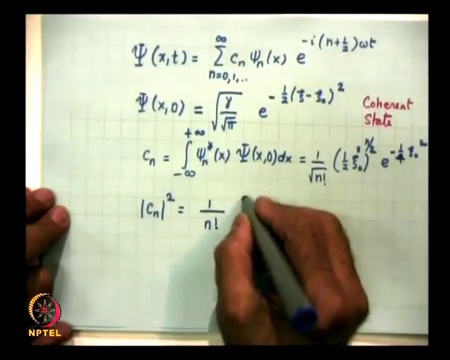 Ψ(x,t) = ∑ₙ₌₀,₁,..^∞ cₙ ψₙ(x) e^{-i(n+½)ωt}
Ψ(x,0) = √(γ/√π) e^{-½(ξ-ξ₀)²}
Coherent State
cₙ = ∫₋∞^{+∞} ψₙ*(x) Ψ(x,0)dx = 1/√n! (½ ξ₀²)^{n/2} e^{-¼ξ₀²}
|cₙ|² = 1/n!
NPTEL